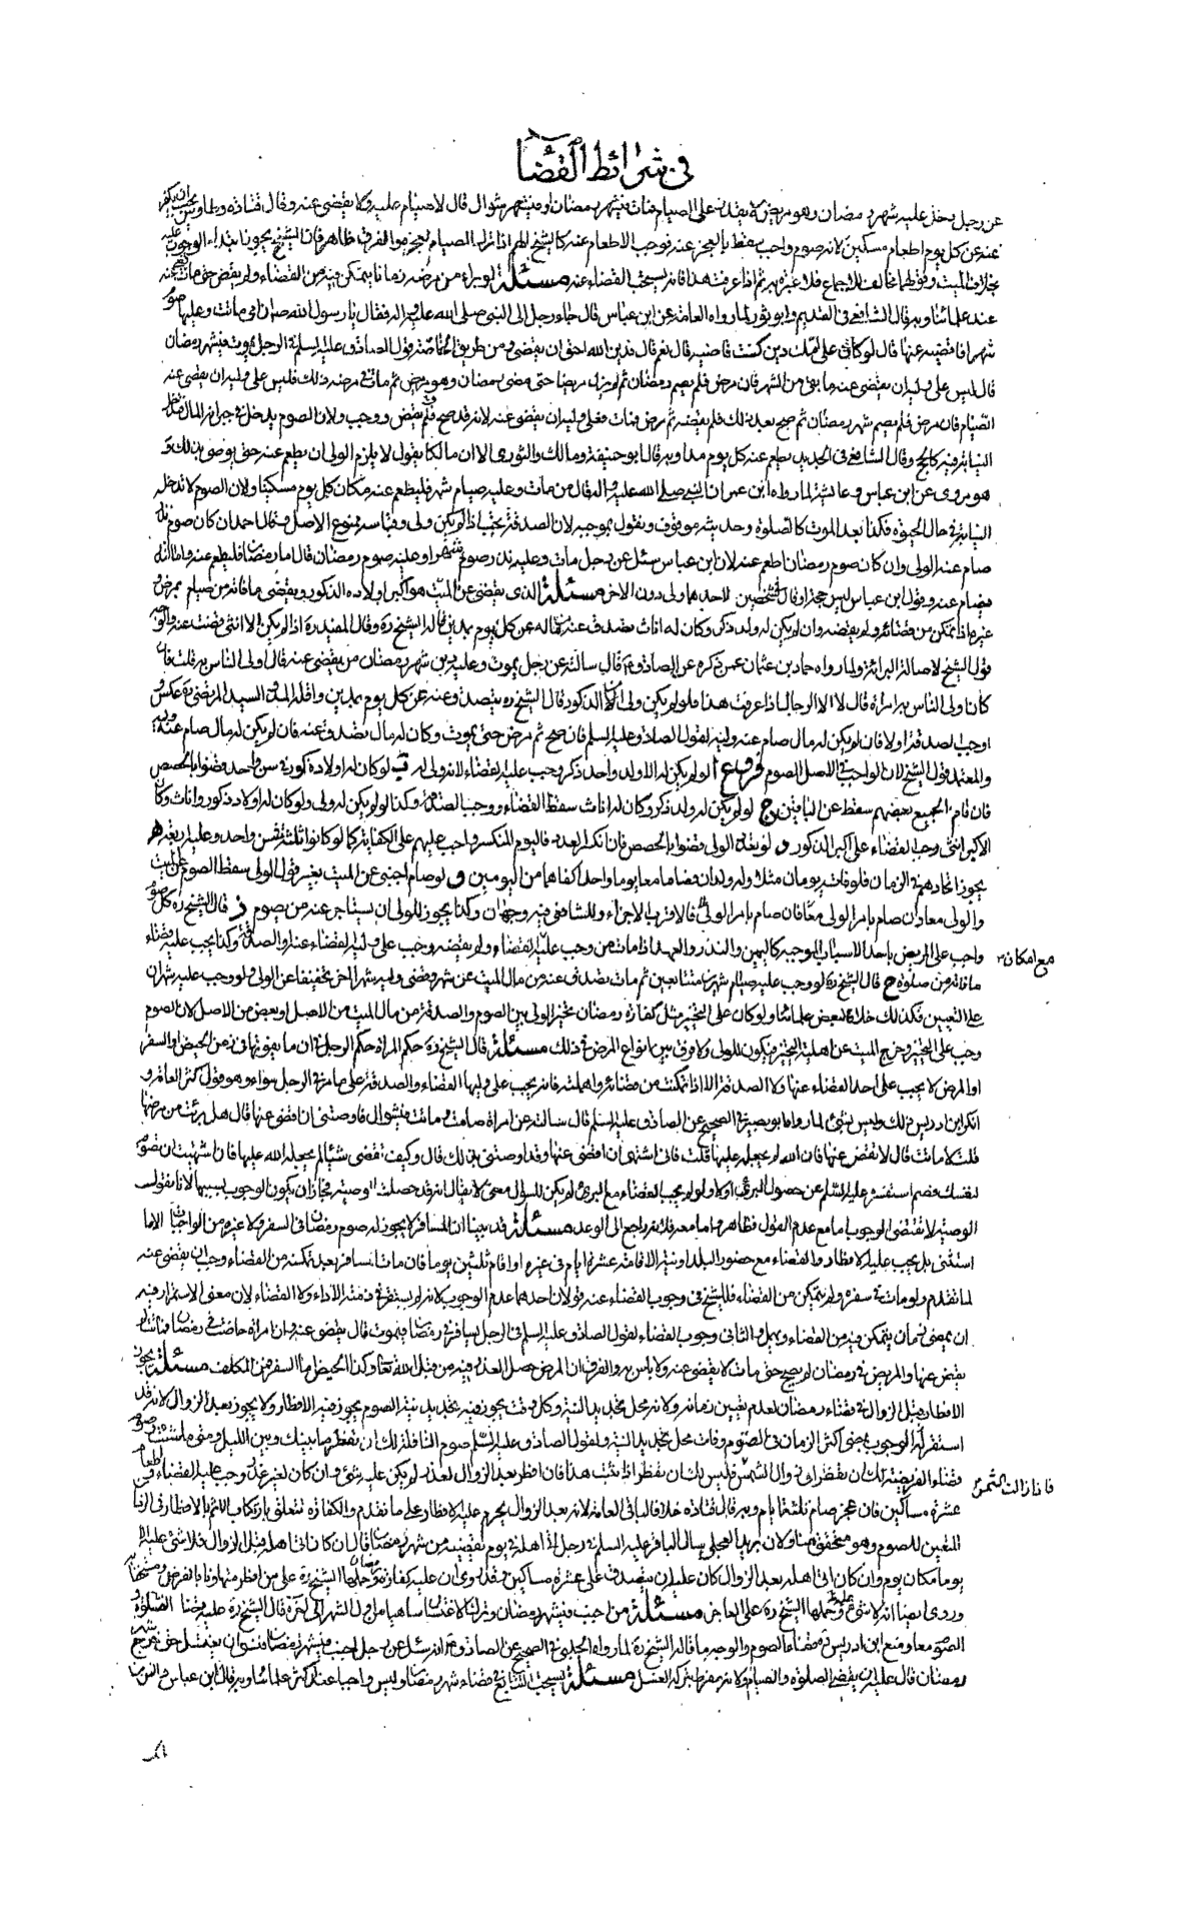 في شرائط القضاء
عن رجل يدخل عليه شهر رمضان وهو مريض لا يقدر على الصيام فمات في شهر رمضان او في شهر شوال قال لا صيام عليه ولا يقضى عنه وقال قتادة وطاوس يجب ان يكفر
عنه عن كل يوم اطعام مسكين لانه صوم واجب سقط بالعجز عنه فوجب الاطعام عنه كالشيخ الهم اذا ترك الصيام لعجزه والفرق ظاهر فان الشيخ يجوز ابتداء الوجوب عليه
بخلاف الميت وقولهما مخالف للاجماع فلا عبرة به ثم اذا عرفت هذا فانه يستحب القضاء عنه مسئلة لو برء من مرضه زمانا يتمكن فيه من القضاء ولم يقض حتى مات قضى عنه
عند علمائنا وبه قال الشافعي في القديم وابو ثور لما رواه العامة عن ابن عباس قال جاء رجل الى النبي صلى الله عليه واله فقال يا رسول الله ان امي ماتت وعليها صوم
شهر افاقضيه عنها قال لو كان على امك دين كنت قاضيه قال نعم قال فدين الله احق ان يقضى ومن طريق الخاصة قول الصادق عليه السلم في الرجل يموت في شهر رمضان
قال ليس على وليه ان يقضي عنه ما بقى من الشهر فان مرض فلم يصم رمضان ثم لم يزل مريضا حتى مضى رمضان وهو مريض ثم مات في مرضه ذلك فليس على وليه ان يقضي عنه
الصيام فان مرض فلم يصم شهر رمضان ثم صح بعد ذلك فلم يقضه ثم مرض فمات فعلى وليه ان يقضى عنه لانه قد صح فلم يقض ووجب ولان الصوم يدخل في جبرانه المال فتدخل
النيابة فيه كالحج وقال الشافعي في الجديد يطعم عنه كل يوم مدا وبه قال ابو حنيفة ومالك والثوري الا ان مالكا يقول لا يلزم الولي ان يطعم عنه حتى يوصى بذلك و
هو مروي عن ابن عباس وعائشة لما رواه ابن عمر ان النبي صلى الله عليه واله قال من مات وعليه صيام شهر فليطعم عنه مكان كل يوم مسكينا ولان الصوم لا تدخله
النيابة في حال الحيوة فكذا بعد الموت كالصلوة وحديثهم موقوف ونقول بموجبه لان الصدقة تجب اذا لم يكن ولي وقياسهم ممنوع الاصل وقال احمد ان كان صوم نذر
صام عنه الولي وان كان صوم رمضان اطعم عنه لان ابن عباس سئل عن رجل مات وعليه نذر صوم شهر وعليه صوم رمضان قال اما رمضان فليطعم عنه واما النذر
فيصام عنه وقول ابن عباس ليس حجة مسئلة الذي يقضى عن الميت هو اكبر اولاده الذكور ويقضى ما فاته من صيام بمرض و
غيره اذا تمكن من قضائه ولم يقضه وان لم يكن له ولد ذكر وكان له اناث عنه من ماله عن كل يوم بمدين قاله الشيخ ره وقال المفيد ره اذا لم يكن الا انثى قضت عنه والوجه
قول الشيخ لاصالة البرائة ولما رواه حماد بن عثمان عمن ذكره عن الصادق ع قال سالته عن رجل يموت وعليه دين شهر رمضان من يقضى عنه قال اولى الناس به قلت فان
كان اولى الناس به امراة قال لا الا الرجال اذا عرفت هذا فلو لم يكن ولي من الذكور قال الشيخ ره يتصدق عنه عن كل يوم بمدين واقله مد والسيد المرتضى ره عكس و
اوجب الصدقة اولا فان لم يكن له مال صام عنه وليه لقول الصادق عليه السلم فان صح ثم مرض حتى يموت وكان له مال تصدق عنه فان لم يكن له مال صام عنه وليه
والمعتمد قول الشيخ لان الواجب في الاصل الصوم فروع ا لو لم يكن له الا ولد واحد ذكر وجب عليه القضاء لانه ولي له ب لو كان له اولاد ذكور في سن واحد قضوا بالحصص
فان قام الجميع بعضهم سقط عن الباقين ج لو لم يكن له ولد ذكر وكان له اناث سقط القضاء ووجبت الصدقة وكذا لو لم يكن له ولي ولو كان له اولاد ذكور واناث وكان
الاكبر انثى وجب القضاء على اكبر الذكور د لو تعدد الولي قضوا بالحصص فان انكسر العدد فاليوم المنكسر واجب عليهم على الكفاية كما لو كانوا ثلثة نفسن واحد وعليه اربعة ه
يجوز اتحاد هم في الزمان فلو فات يومان مثلا وله ولدان فصاما معا يوما واحدا كفاهما من اليومين و لو صام اجنبي عن الميت بغير قول الولي سقط الصوم عن الميت
والولي معا وان صام بامر الولي فالاقرب الاجزاء وللشافعي فيه وجهان وكذا يجوز للولي ان يستاجر عنه من يصوم ز قال الشيخ ره كل صوم
واجب على المريض باحد الاسباب الموجبة كاليمين والنذر والعهد اذا مات من وجب عليه القضاء ولم يقضه وجب على وليه القضاء عنه او الصدقة وكذا يجب عليه قضاء
مع امكانه
ما فاته من صلوة ح قال الشيخ ره لو وجب عليه صيام شهرين متتابعين ثم مات تصدق عنه من مال الميت عن شهر وقضى وليه شهرا اخر تخفيفا عن الولي ولو وجب عليه شهران
على التعيين فكذلك خلافا لبعض علمائنا ولو كان على التخيير مثل كفارة رمضان تخير الولي بين الصوم والصدقة من مال الميت من الاصل وبعض من الاصل لان الصوم
وجب على التخيير وخرج الميت عن اهلية التخيير فيكون للولي ولا فرق بين انواع المرض في ذلك مسئلة قال الشيخ ره حكم المراة حكم الرجل في ان ما يفوتها في زمن الحيض او السفر
او المرض لا يجب على احد القضاء عنها ولا الصدقة الا اذا تمكنت من قضائه واهملته فانه يجب على وليها القضاء والصدقة على ما مر في الرجل سواء وهو قول اكثر العامة و
انكر ابن ادريس ذلك وليس بشئ لما رواه ابو بصير في الصحيح عن الصادق عليه السلم قال سالته عن امراة صامت وماتت في شوال فاوصتني ان اقضى عنها قال هل برئت من مرضها
قلت لا ماتت قال لا تقض عنها فان الله لم يجعله عليها قلت فاني اشتهي ان اقضى عنها وقد اوصتني بذلك قال وكيف تقضى شيئا لم يجعله الله عليها فان اشتهيت ان تصوم
لنفسك فصم استفسره عليه السلم عن حصول البرء اولا ولو لم يجب القضاء مع البرء لم يكن للسؤال معنى لا يقال انه قد حصلت وصية فجاز ان يكون الوجوب بسببها لانا نقول
الوصية لا تقتضى الوجوب اما مع عدم القبول فظاهر واما معه فلانه راجع الى الوعد مسئلة قد بينا ان المسافر لا يجوز له صوم رمضان في السفر ولا غيره من الواجبات الا ما
استثنى بل يجب عليه الافطار والقضاء مع حضور البلد او نية الاقامة عشرة ايام في غيره او اقام ثلثين يوما فان مات المسافر بعد تمكنه من القضاء وجب ان يقضى عنه
لما تقدم ولو مات في سفره ولم يتمكن من القضاء فللشيخ في وجوب القضاء عنه قولان احدهما عدم الوجوب لانه لم يستقر في ذمته الاداء ولا القضاء لان معنى الاستقرار فيه
ان يمضى زمان يتمكن فيه من القضاء ويهمل الثاني وجوب القضاء لقول الصادق عليه السلم في الرجل يسافر في رمضان فيموت قال يقضى عنه وان امراة حاضت في رمضان فماتت لم
يقض عنها والمريض في رمضان لم يصح حتى مات لا يقضى عنه ولا باس به والفرق ان المرض حصل العذر فيه من قبل الله تعالى وكذا الحيض اما السفر فمن المكلف مسئلة يجوز
الافطار قبل الزوال في قضاء رمضان لعدم تعيين زمانه ولانه محل تجديد النية وكل وقت يجوز فيه تجديد نية الصوم يجوز فيه الافطار ولا يجوز بعد الزوال لانه قد
استقر له الوجوب بمضى اكثر الزمان في الصوم وفات محل تجديد النية ولقول الصادق عليه السلم صوم النافلة لك ان تفطر ما بينك وبين الليل ومتى ما شئت وصوم
قضاء الفريضة لك ان تفطر الى زوال الشمس فليس لك ان تفطر اذا ثبت هذا فان افطر بعد الزوال لعذر لم يكن عليه شئ وان كان لغير عذر وجب عليه القضاء واطعام
فاذا زالت الشمس
عشرة مساكين فان عجز صام ثلثة ايام وبه قال قتادة خلافا لباقي العامة لانه بعد الزوال يحرم عليه الافطار على ما تقدم والكفارة تتعلق بارتكاب الاثم بالافطار في الزمان
المتعين للصوم وهو متحقق هنا ولان بريدا العجلي سال الباقر عليه السلم في رجل اتى اهله في يوم يقضيه من شهر رمضان قال ان كان اتى اهله قبل الزوال فلا شئ عليه الا
يوما مكان يوم وان كان اتى اهله بعد الزوال كان عليه ان يتصدق على عشرة مساكين وقد روى ان عليه كفارة رمضان وحملها الشيخ ره على من افطر متهاونا بالفرض ومستخفا به
وروى ايضا انه لا شئ عليه وحملها الشيخ ره على العاجز مسئلة من اجنب في شهر رمضان وترك الاغتسال ساهيا من اول الشهر الى اخره قال الشيخ ره عليه قضاء الصلوة و
الصوم معا ومنع ابن ادريس قضاء الصوم والوجه ما قاله الشيخ ره لما رواه الحلبي في الصحيح عن الصادق ع انه سئل عن رجل اجنب في شهر رمضان فنسى ان يغتسل حتى خرج شهر
رمضان قال عليه ان يقضى الصلوة والصيام ولانه مفرط بتركه الغسل مسئلة يستحب التتابع في قضاء شهر رمضان وليس واجبا عند اكثر علمائنا وبه قال ابن عباس و